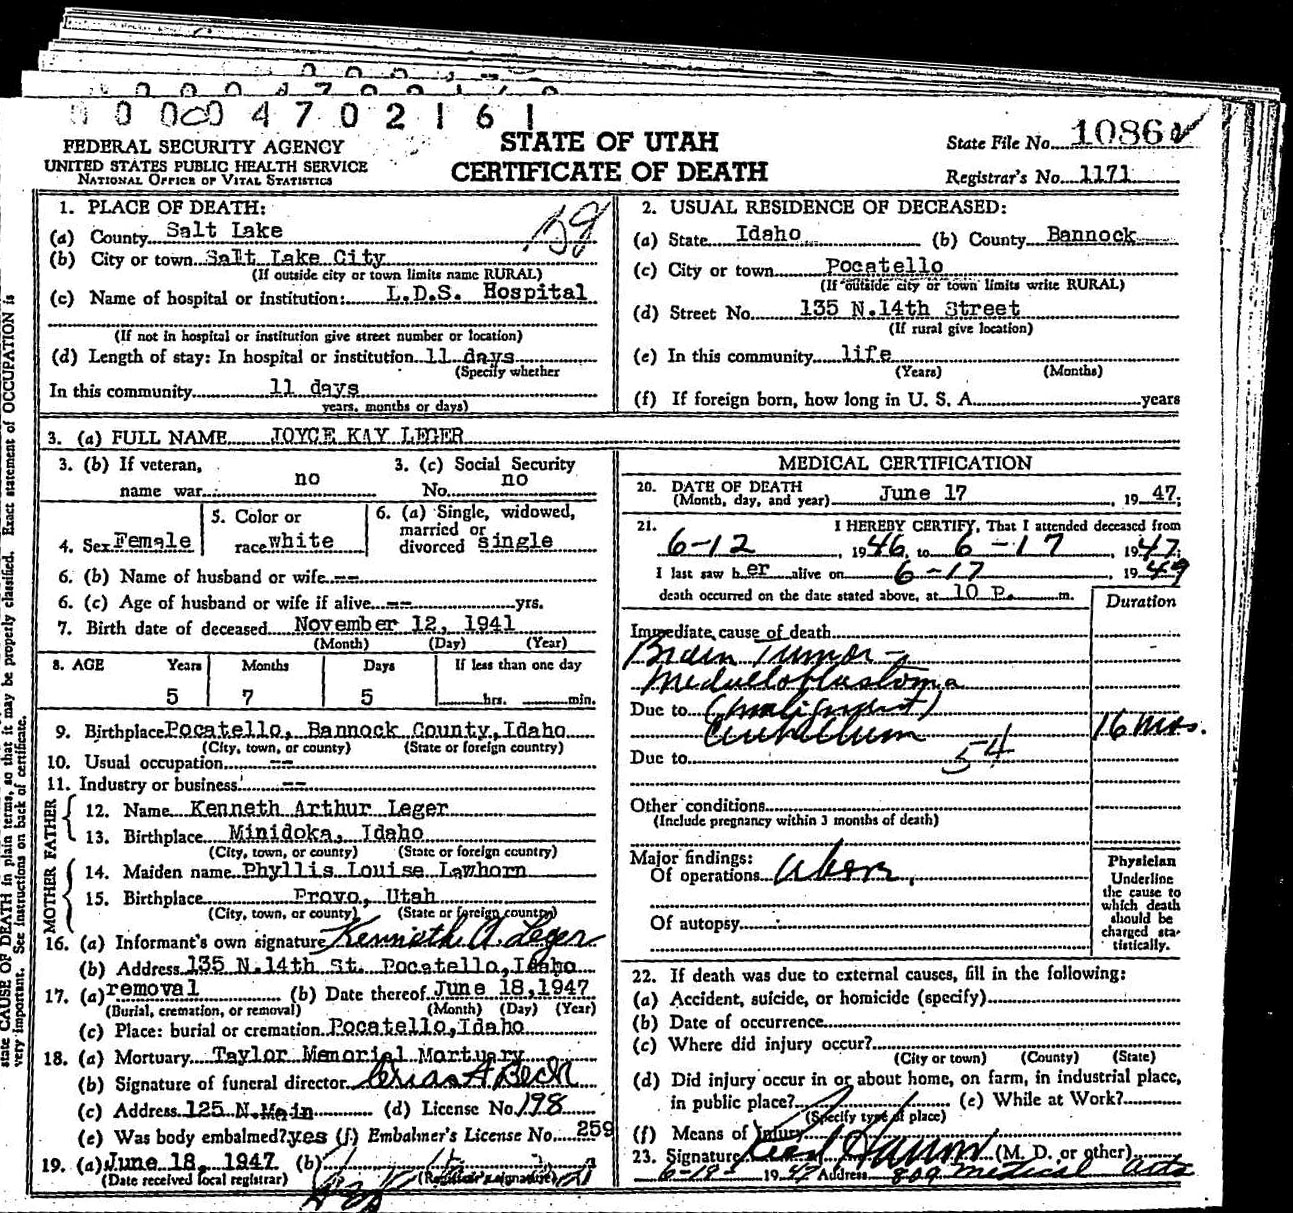 0 0 0 0 4 7 0 2 1 6 1
FEDERAL SECURITY AGENCY
UNITED STATES PUBLIC HEALTH SERVICE
NATIONAL OFFICE OF VITAL STATISTICS
STATE OF UTAH
CERTIFICATE OF DEATH
State File No. 1086
Registrar's No. 1171
1. PLACE OF DEATH:
(a) County Salt Lake
(b) City or town Salt Lake City
(If outside city or town limits name RURAL)
(c) Name of hospital or institution: L.D.S. Hospital
(If not in hospital or institution give street number or location)
(d) Length of stay: In hospital or institution 11 days
(Specify whether
In this community 11 days
years, months or days)
2. USUAL RESIDENCE OF DECEASED:
(a) State Idaho (b) County Bannock
(c) City or town Pocatello
(If outside city or town limits write RURAL)
(d) Street No. 135 N.14th Street
(If rural give location)
(e) In this community life
(Years) (Months)
(f) If foreign born, how long in U. S. A. years
3. (a) FULL NAME JOYCE KAY LEGER
3. (b) If veteran, name war no
3. (c) Social Security No. no
4. Sex Female
5. Color or race white
6. (a) Single, widowed, married or divorced single
6. (b) Name of husband or wife --
6. (c) Age of husband or wife if alive -- yrs.
7. Birth date of deceased November 12, 1941
(Month) (Day) (Year)
8. AGE Years Months Days If less than one day
5 7 5 hrs. min.
9. Birthplace Pocatello, Bannock County, Idaho
(City, town, or county) (State or foreign country)
10. Usual occupation --
11. Industry or business --
FATHER
12. Name Kenneth Arthur Leger
13. Birthplace Minidoka, Idaho
(City, town, or county) (State or foreign country)
MOTHER
14. Maiden name Phyllis Louise Lawhorn
15. Birthplace Provo, Utah
(City, town, or county) (State or foreign country)
16. (a) Informant's own signature Kenneth A. Leger
(b) Address 135 N.14th St. Pocatello, Idaho
17. (a) removal (b) Date thereof June 18, 1947
(Burial, cremation, or removal) (Month) (Day) (Year)
(c) Place: burial or cremation Pocatello, Idaho
18. (a) Mortuary Taylor Memorial Mortuary
(b) Signature of funeral director
(c) Address 125 N.Main (d) License No. 198
(e) Was body embalmed? yes (f) Embalmer's License No. 259
19. (a) June 18, 1947 (b)
(Date received local registrar) (Registrar's signature)
MEDICAL CERTIFICATION
20. DATE OF DEATH
(Month, day, and year) June 17, 1947;
21. I HEREBY CERTIFY, That I attended deceased from
6-12, 1946, to 6-17, 1947;
I last saw her alive on 6-17, 1947
death occurred on the date stated above, at 10 P. m.
Duration
Immediate cause of death
Brain Tumor -
Medulloblastoma
Due to (malignant)
Cerebellum 16 mos.
Due to 54
Other conditions
(Include pregnancy within 3 months of death)
Major findings:
Of operations above.
Of autopsy
Physician
Underline
the cause to
which death
should be
charged sta-
tistically.
22. If death was due to external causes, fill in the following:
(a) Accident, suicide, or homicide (specify)
(b) Date of occurrence
(c) Where did injury occur?
(City or town) (County) (State)
(d) Did injury occur in or about home, on farm, in industrial place,
in public place? (e) While at Work?
(Specify type of place)
(f) Means of Injury
23. Signature (M. D. or other)
6-19- 1947 Address 809 Medical Arts
state CAUSE OF DEATH in plain terms, so that it may be properly classified. Exact statement of OCCUPATION is
very important. See instructions on back of certificate.